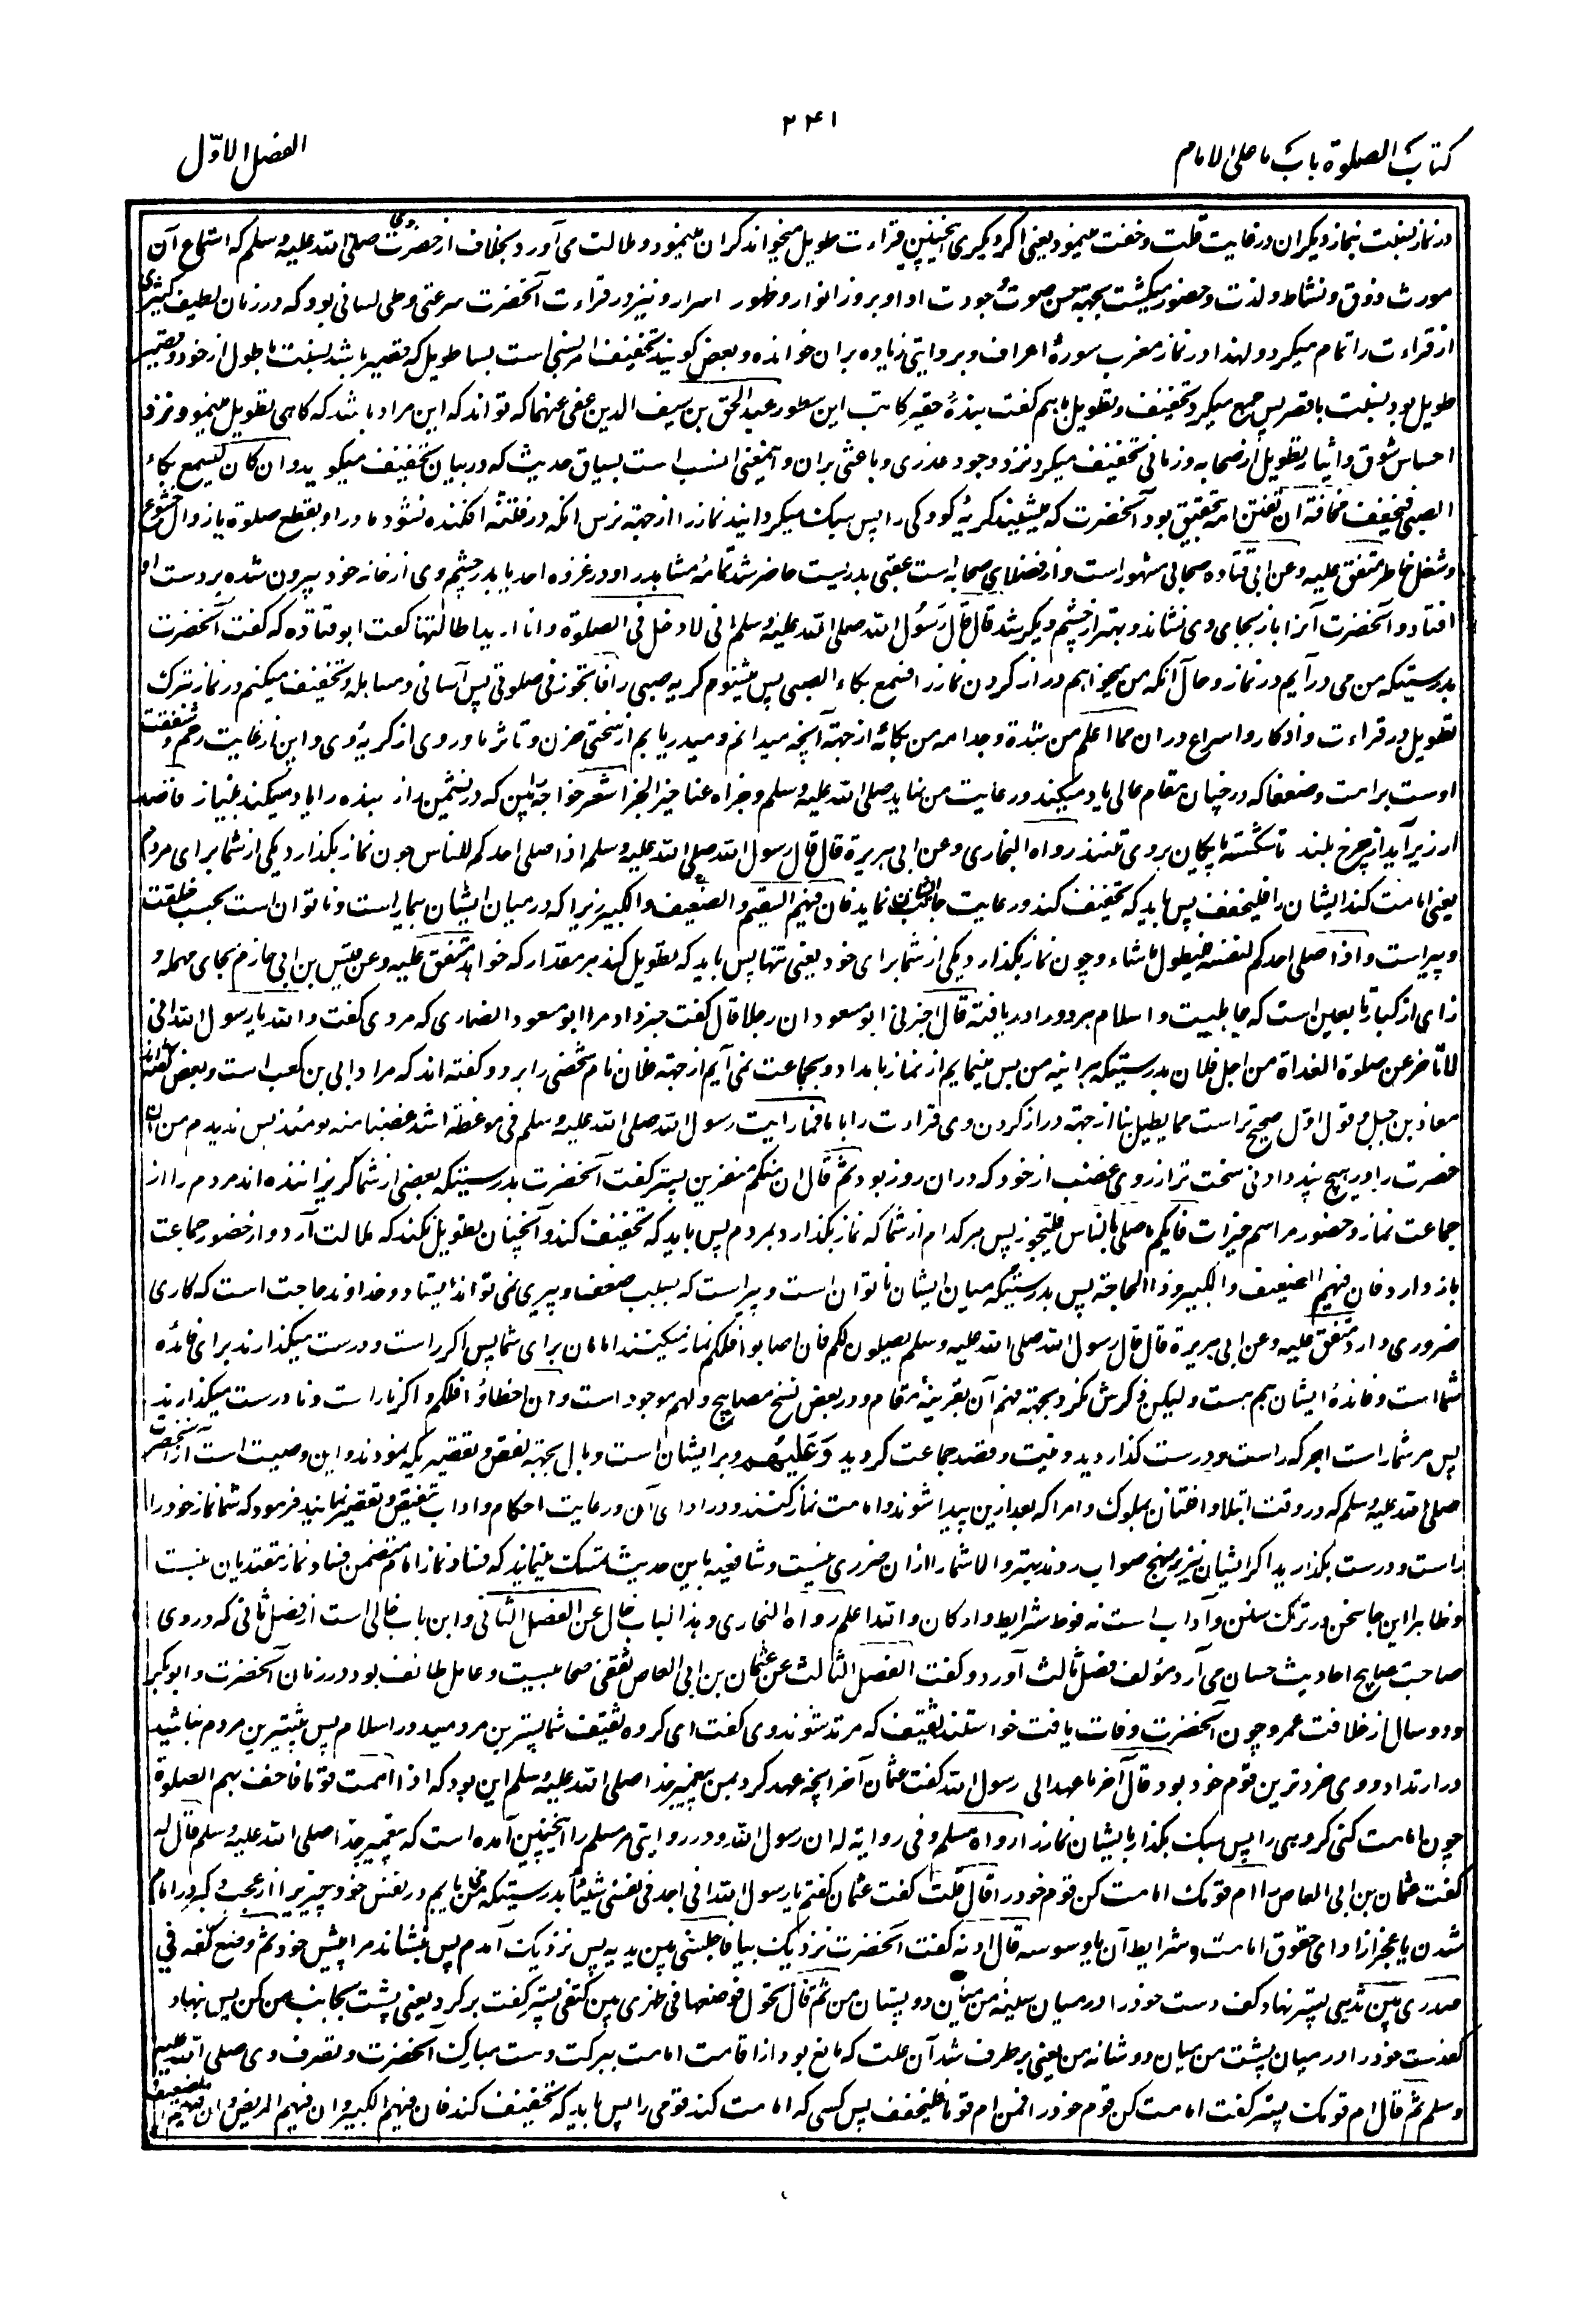 ۲۴۱
کتاب الصلوة باب ما علی الامام
الفصل الاوّل
در نماز نسبت بنماز دیگران در غایت قلت و خفت مینمود یعنی اگر دیگری اینچنین قراءت طویل میخواند گران مینمود و ملالت می آورد بخلاف از حضرت وی صلی الله علیه وسلم که استماع آن
مورث ذوق و نشاط و لذت و حضور میگشت بجهته حسن صوت و جودت ادا و بروز انوار و ظهور اسرار و نیز در قراءت آنحضرت سرعتی و طی لسانی بود که در زمان لطیف کثیری
از قراءت را تمام میکرد و لهذا در نماز مغرب سورهٔ اعراف و بروایتی زیاده بران خوانده و بعض گویند تخفیف امر نسبی است بسا طویل که قصیر باشد بنسبت باطول از خود و قصیر
طویل بود بنسبت باقصر پس جمع میکرد تخفیف و تطویل باهم گفت بندهٔ حقیر کاتب این سطور عبد الحق بن سیف الدین عفی عنهما که تواند که این مراد باشد که گاهی تطویل مینمود نزد
احساس شوق و ایثار تطویل از صحابه و زمانی تخفیف میکرد نزد وجود عذری و باعثی بران و اینمعنی انسب است بسیاق حدیث که در بیان تخفیف میگوید وان کان لیسمع بکاء
الصبی فیخفف مخافة ان تفتن امه تحقیق بود آنحضرت که میشنید گریهٔ کودکی را پس سبک میگردانید نماز را از جهته ترس انکه در فتنه افکنده نشود مادر او بقطع صلوة یا زوال خشوع
و شغل خاطر متفق علیه وعن ابی قتاده صحابی مشهور است و از فضلای صحابه است عقبی بدریست حاضر شد تمامهٔ مشاهد را و در غزوه احد یا بدر چشم وی از خانه خود بیرون شده بر دست او
افتاد و آنحضرت آنرا باز بجای وی نشاند و بهتر از چشم دیگر شد قال قال رسول الله صلی الله علیه وسلم انی لادخل فی الصلوة وانا ارید اطالتها گفت ابو قتاده که گفت آنحضرت
بدرستیکه من می درآیم در نماز و حال آنکه من میخواهم دراز کردن نماز را فاسمع بکاء الصبی پس میشنوم گریه صبی را فاتجوز فی صلوتی پس آسانی و مساهله و تخفیف میکنم در نماز بترک
تطویل در قراءت و اذکار و اسراع دران مما اعلم من شدة وجد امه من بکائه از جهته آنچه میدانم و میدریابم از سختی حزن و تاثر مادر وی از گریهٔ وی و این از غایت رحم و شفقت
اوست بر امت و ضعفا که در چنان مقام عالی یاد میکند و رعایت می نماید صلی الله علیه وسلم وجزاه عنا خیر الجزا شعر خواجه بین که در نشیمن راز بنده را یاد میکند بنیاز قاصد
ار زیر آید از چرخ بلند تا شکسته پایگان بر وی تنند رواه البخاری وعن ابی هریرة قال قال رسول الله صلی الله علیه وسلم اذا صلی احدکم للناس چون نماز بگذارد یکی از شما برای مردم
یعنی امامت کند ایشان را فلیخفف پس باید که تخفیف کند و رعایت جانب ایشان نماید فان فیهم السقیم والضعیف والکبیر زیرا که در میان ایشان بیمار است و ناتوان است بحسب خلقت
و پیر است واذا صلی احدکم لنفسه فلیطول ما شاء و چون نماز بگذارد یکی از شما برای خود یعنی تنها پس باید که تطویل کند هر مقدار که خواهد متفق علیه وعن قیس بن ابی حازم بحای مهمله و
زای از کبار تابعین است که جاهلیت و اسلام هر دو را دریافته قال اخبرنی ابو مسعود ان رجلا قال گفت خبر داد مرا ابو مسعود انصاری که مردی گفت والله یا رسول الله انی
لاتأخر عن صلوة الغداة من اجل فلان بدرستیکه هر اینه من پس مینمایم از نماز بامداد و بجماعت نمی آیم از جهته فلان نام شخصی را برد و گفته اند که مراد ابی بن کعب است و بعض گفته اند
معاذ بن جبل و قول اوّل صحیح تر است مما یطیل بنا از جهته دراز کردن وی قراءت را با ما فما رایت رسول الله صلی الله علیه وسلم فی موعظة اشد غضبا منه یومئذ پس ندیدم من آن
حضرت را در هیچ پند دادنی سخت تر از روی غضب از خود که دران روز بود ثم قال ان منکم منفرین پستر گفت آنحضرت بدرستیکه بعضی از شما گریزاننده اند مردم را از
جماعت نماز و حضور مراسم خیرات فایکم ما صلی بالناس فلیتجوز پس هر کدام از شما که نماز بگذارد بمردم پس باید که تخفیف کند و آنچنان تطویل نکند که ملالت آرد و از حضور جماعت
باز دارد فان فیهم الضعیف والکبیر وذا الحاجة پس بدرستیکه میان ایشان ناتوان است و پیر است که بسبب ضعف و پیری نمی تواند ایستاد و خداوند حاجت است که کاری
ضروری دارد متفق علیه وعن ابی هریرة قال قال رسول الله صلی الله علیه وسلم یصلون لکم فان اصابوا فلکم نماز میکنند امامان برای شما پس اگر راست و درست میگذارند برای فائده
شما است و فائدهٔ ایشان هم هست و لیکن ذکرش نکرد بجهته فهم آن بقرینهٔ مقام و در بعض نسخ مصابیح ولهم موجود است وان اخطاؤا فلکم و اگر ناراست و نادرست میگذارند
پس مر شما راست اجر که راست و درست گذاردید و نیت و قصد جماعت کردید وَعَلَیهِم و بر ایشان است وبال بجهته نقص و تقصیریکه نمودند و این وصیت است از آنحضرت
صلی الله علیه وسلم که در وقت ابتلا و افتتان بملوک و امرا که بعد ازین پیدا شوند و امامت نماز کنند و در ادای آن و رعایت احکام و اداب تنقیص و تقصیر نمایند فرمود که شما نماز خود را
راست و درست بگذارید اگر ایشان نیز بر منهج صواب روند بهتر و الا شما را ازان ضرری نیست و شافعیه باین حدیث تمسک مینمایند که فساد نماز امام متضمن فساد نماز مقتدیان نیست
و ظاهر این جا سخن در ترک سنن و آداب است نه فوط شرایط و ارکان والله اعلم رواه البخاری وهذا الباب خال عن الفصل الثانی و این باب خالی است از فصل ثانی که در وی
صاحب مصابیح احادیث حسان می آرد مؤلف فصل ثالث آورد و گفت الفصل الثالث عن عثمان بن ابی العاص ثقفی صحابیست و عامل طائف بود در زمان آنحضرت و ابو بکر
و دو سال از خلافت عمر و چون آنحضرت وفات یافت خواستند ثقیف که مرتد شوند وی گفت ای گروه ثقیف شما پسترین مردمید در اسلام پس پیشترین مردم نباشید
در ارتداد و وی خردترین قوم خود بود قال آخر ما عهد الی رسول الله گفت عثمان آخر آنچه عهد کرد بمن پیغمبر خدا صلی الله علیه وسلم این بود که اذا اممت قوما فاخف بهم الصلوة
چون امامت کنی گروهی را پس سبک بگذار بایشان نماز را رواه مسلم وفی روایة له ان رسول الله و در روایتی مر مسلم را اینچنین آمده است که پیغمبر خدا صلی الله علیه وسلم قال له
گفت عثمان بن ابی العاص را ام قومک امامت کن قوم خود را قال قلت گفت عثمان گفتم یا رسول الله انی اجد فی نفسی شیئا بدرستیکه من می یابم در نفس خود چیزی را از عجب و کبر در امام
شدن یا عجز از ادای حقوق امامت و شرایط آن یا وسوسه قال ادنه گفت آنحضرت نزدیک بیا فاجلسنی بین یدیه پس نزدیک آمدم پس بنشاند مرا پیش خود ثم وضع کفه فی
صدری بین ثدیی پستر نهاد کف دست خود را در میان سینه من میان دو پستان من ثم قال تحول فوضعها فی ظهری بین کتفی پستر گفت برگرد یعنی پشت بجانب من کن پس نهاد
کفدست خود را در میان پشت من میان دو شانه من یعنی برطرف شد آن علت که مانع بود از اقامت امامت ببرکت دست مبارک آنحضرت و تصرف وی صلی الله علیه
وسلم ثم قال ام قومک پستر گفت امامت کن قوم خود را فمن ام قوما فلیخفف پس کسی که امامت کند قومی را پس باید که تخفیف کند فان فیهم الکبیر وان فیهم المریض وان فیهم الضعیف